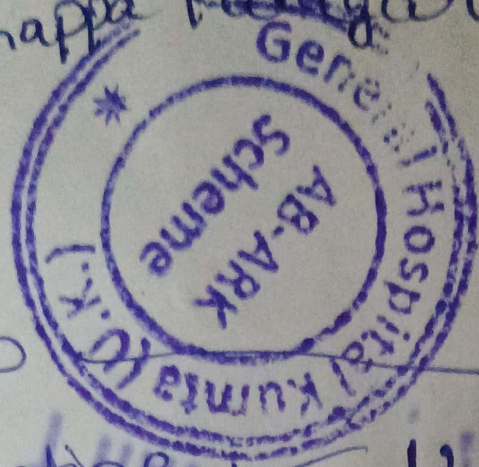 General Hospital Kumta (U.K.)
AB-ARK
Scheme